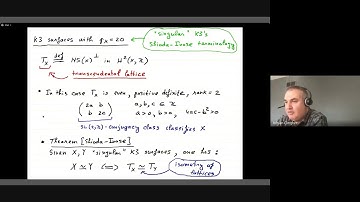 K3 surfaces with ρx = 20
"singular" K3's
Shioda-Inose terminology
Tx def = NS(x)⊥ in H²(x, ℤ)
transcendental lattice
• In this case Tx is even, positive definite, rank = 2
( 2a b
b 2c )
a, b, c ∈ ℤ
a > 0, b > 0, 4ac - b² > 0
SL(2, ℤ)-conjugacy class classifies X
• Theorem [Shioda-Inose]
Given X, Y "singular" K3 surfaces, one has:
X ≃ Y ⟺ Tx ≃ Ty
isometry of
lattices